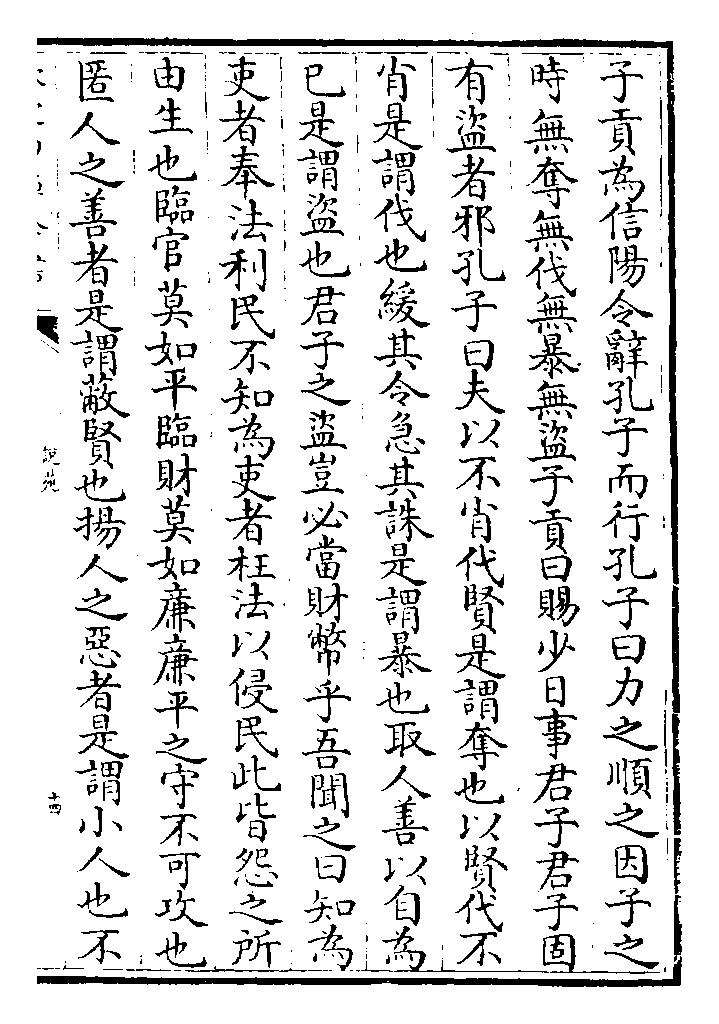 子貢為信陽令辭孔子而行孔子曰力之順之因子之
時無奪無伐無暴無盜子貢曰賜少日事君子君子固
有盜者邪孔子曰夫以不肖代賢是謂奪也以賢代不
肖是謂伐也緩其令急其誅是謂暴也取人善以自為
已是謂盜也君子之盜豈必當財幣乎吾聞之曰知為
吏者奉法利民不知為吏者枉法以侵民此皆怨之所
由生也臨官莫如平臨財莫如廉廉平之守不可攻也
匿人之善者是謂蔽賢也揚人之惡者是謂小人也不
說苑
十四